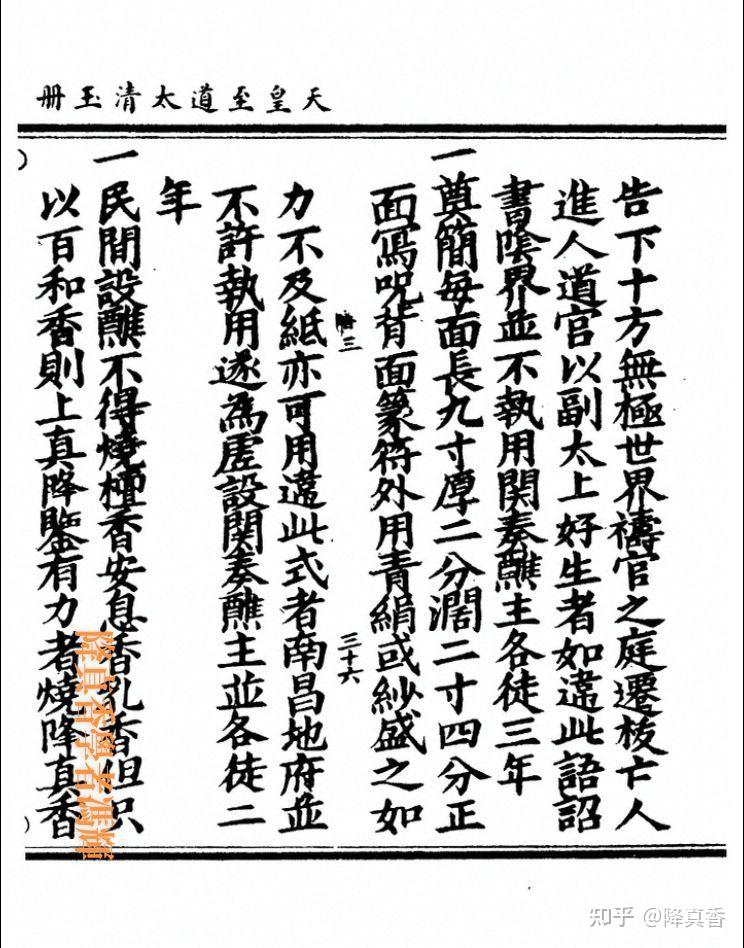 天皇至道太清玉册
告下十方無極世界禱官之庭遷拔亡人
進人道官以副太上好生者如違此語詔
書陰界並不執用関奏醮主各徒三年
一奠簡每面長九寸厚二分濶二寸四分正
面寫呪背面篆符外用青絹或紗盛之如
三
三十六
力不及紙亦可用違此式者南昌地府並
不許執用遂為虛設関奏醮主並各徒二
年
一民間設醮不得燒檀香安息香乳香但只
以百和香則上真降鑒有力者燒降真香
降真香學者馮輝
知乎 @降真香